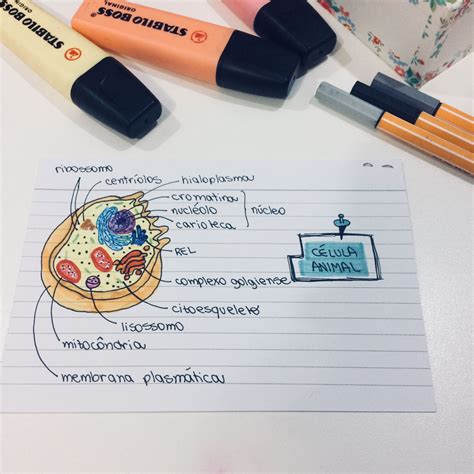 STABILO BOSS
ORIGINAL
STABILO BOSS
ORIGINAL
STABILO BOSS
ORIGINAL
ribossomo
centríolos
hialoplasma
cromatina
nucléolo
núcleo
carioteca
REL
complexo golgiense
citoesqueleto
lisossomo
mitocôndria
membrana plasmática
CÉLULA
ANIMAL